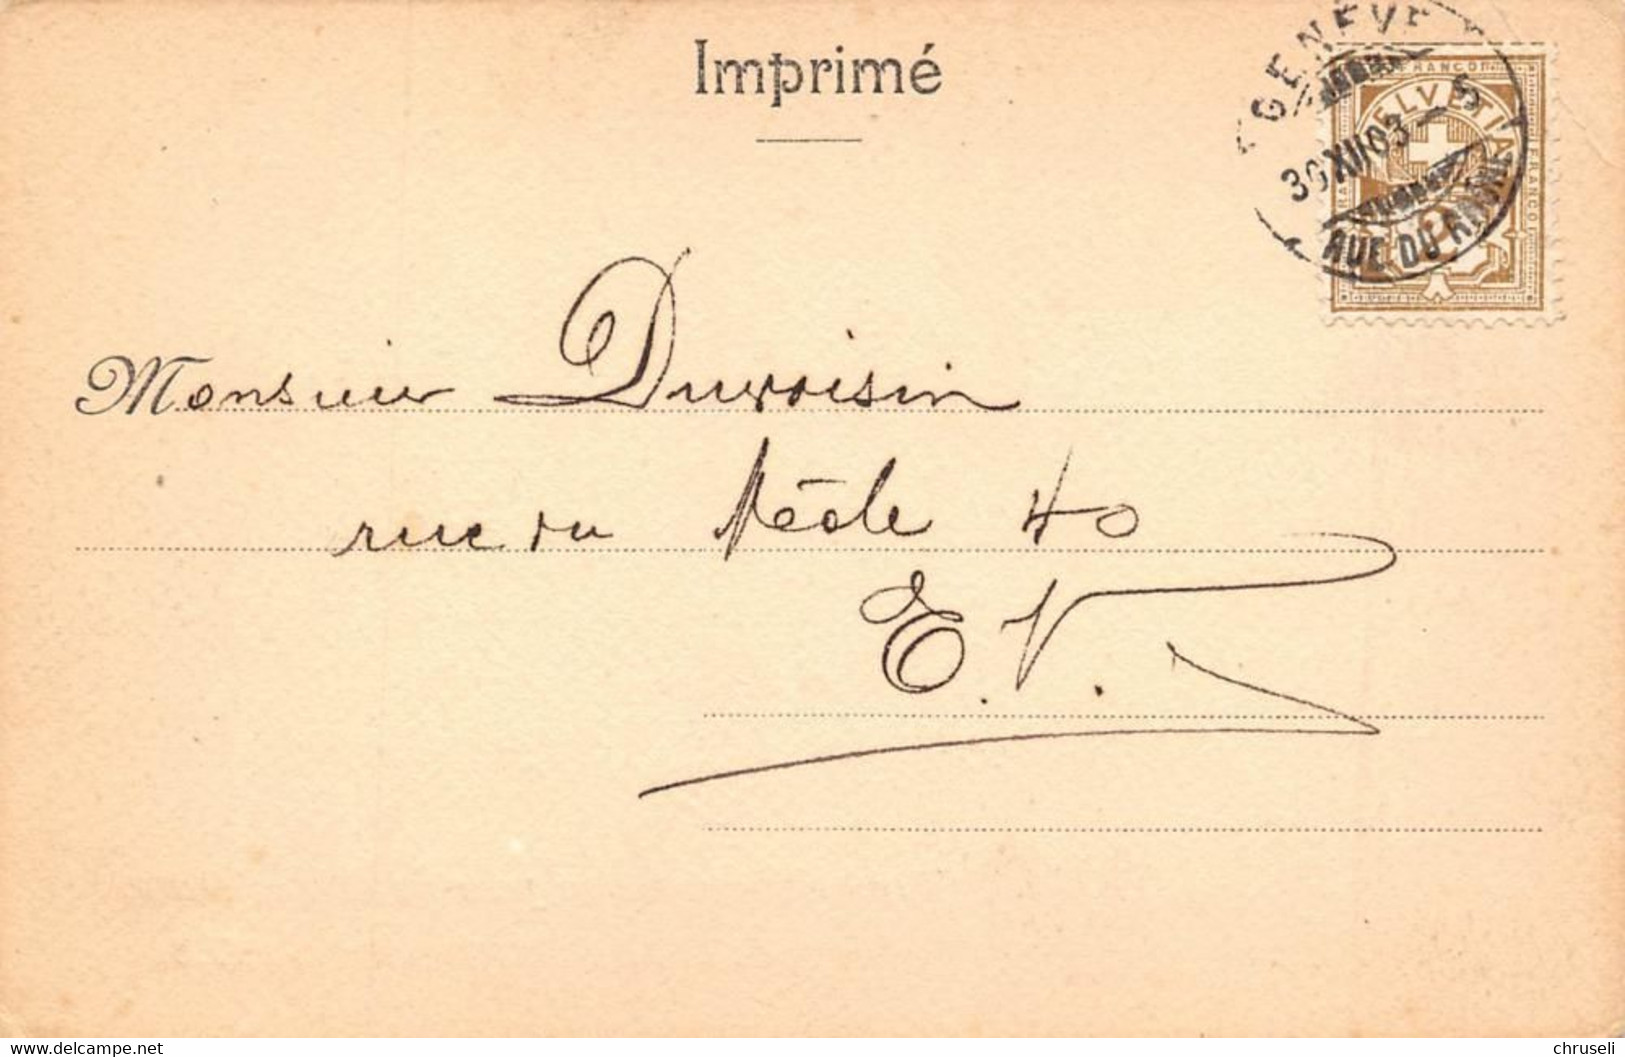 Imprimé
GENEVE
30 XII 03 — 5
RUE DU RHONE
FRANCO
HELVETIA
FRANCO
Monsieur Duvoisin
rue du Môle 40
E. V.
chruseli